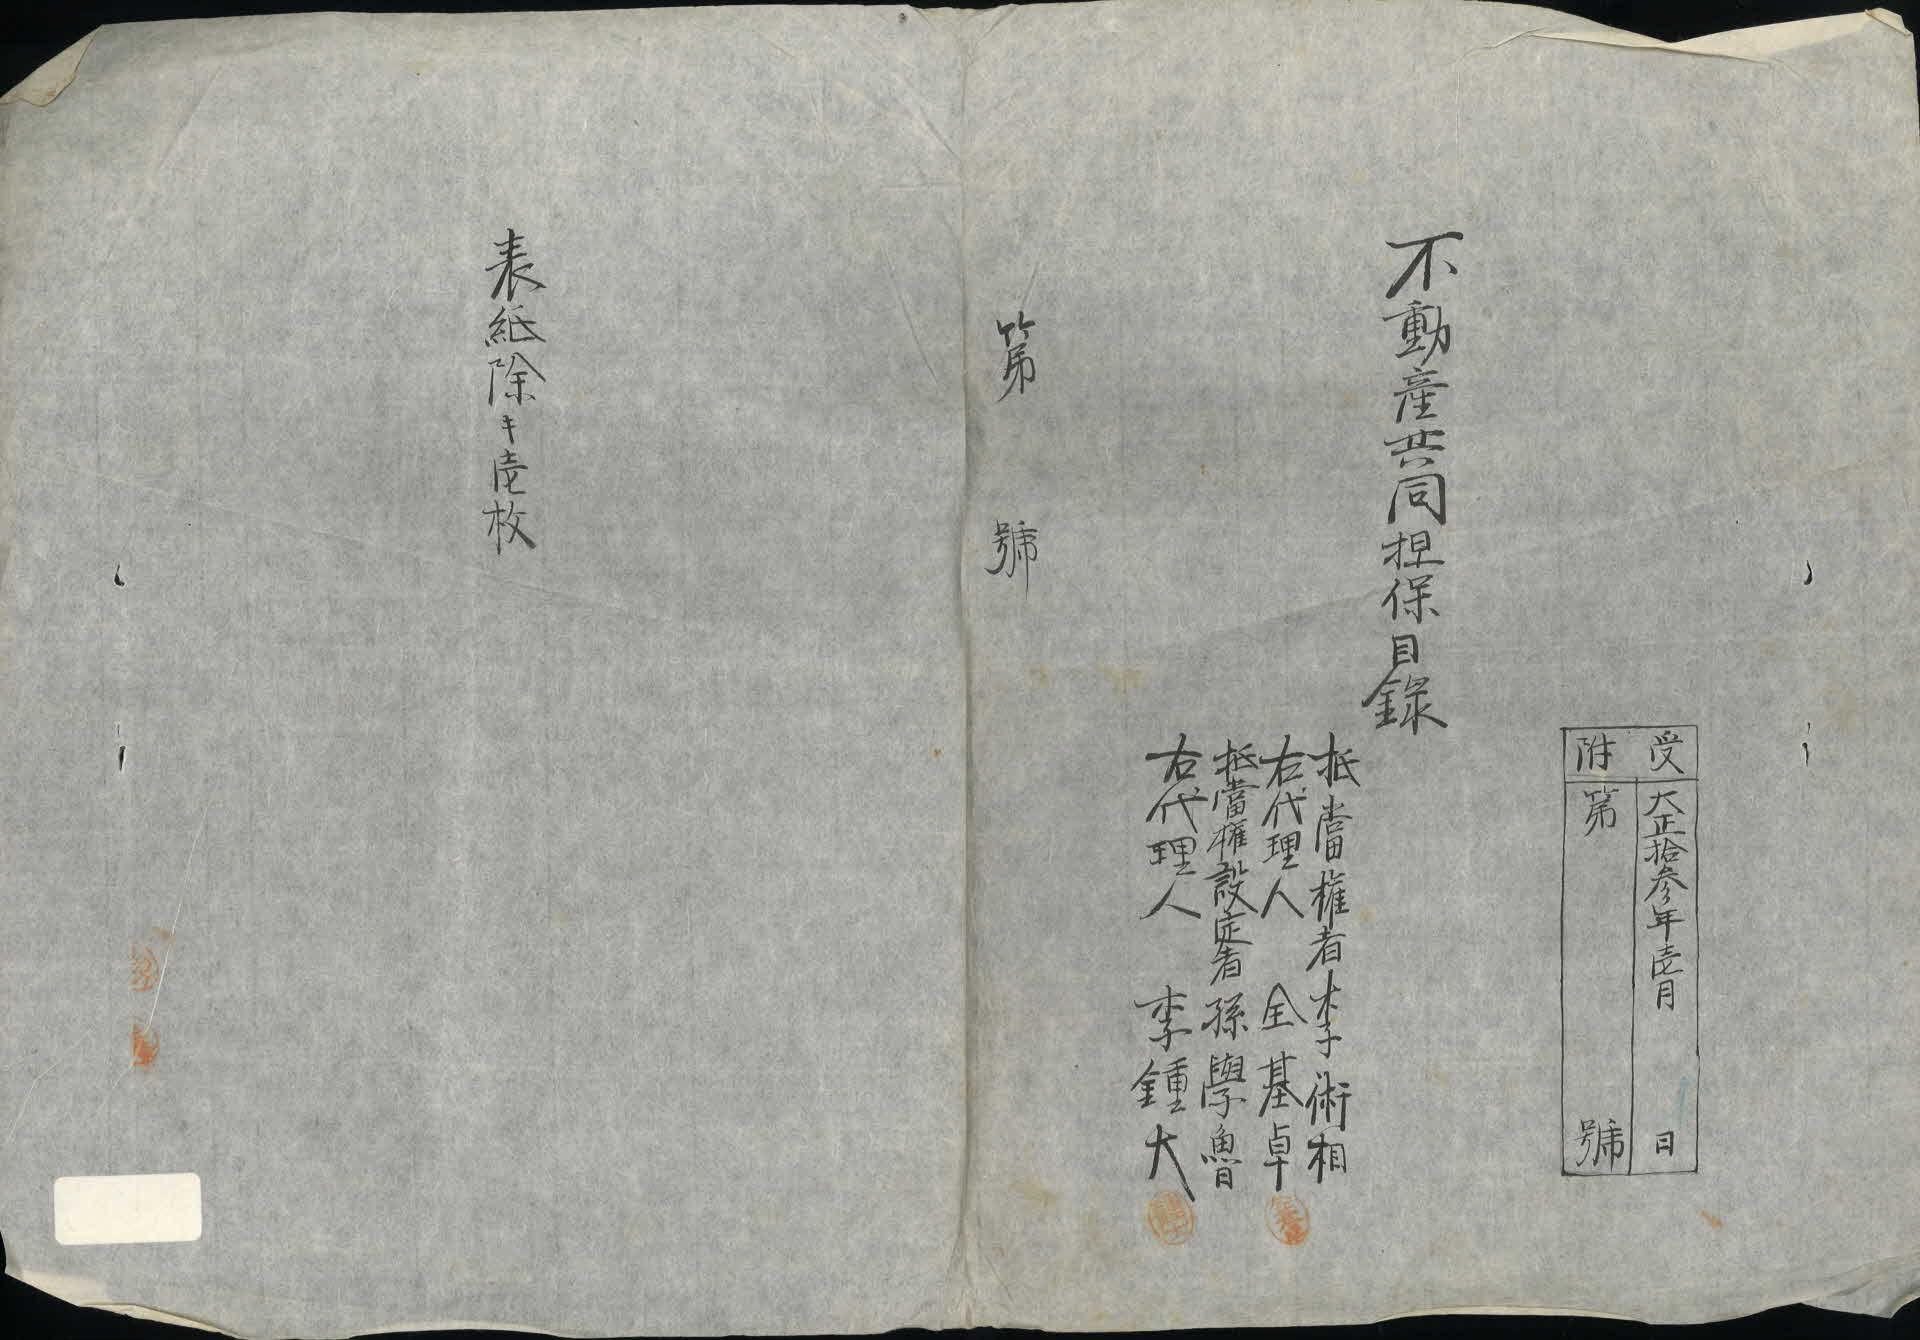 受附
大正拾参年壱月 日
第 號
不動産共同担保目録
抵當權者 李術相
右代理人 全基卓
抵當權設定者 孫學魯
右代理人 李鍾大
第 號
表紙除キ壱枚